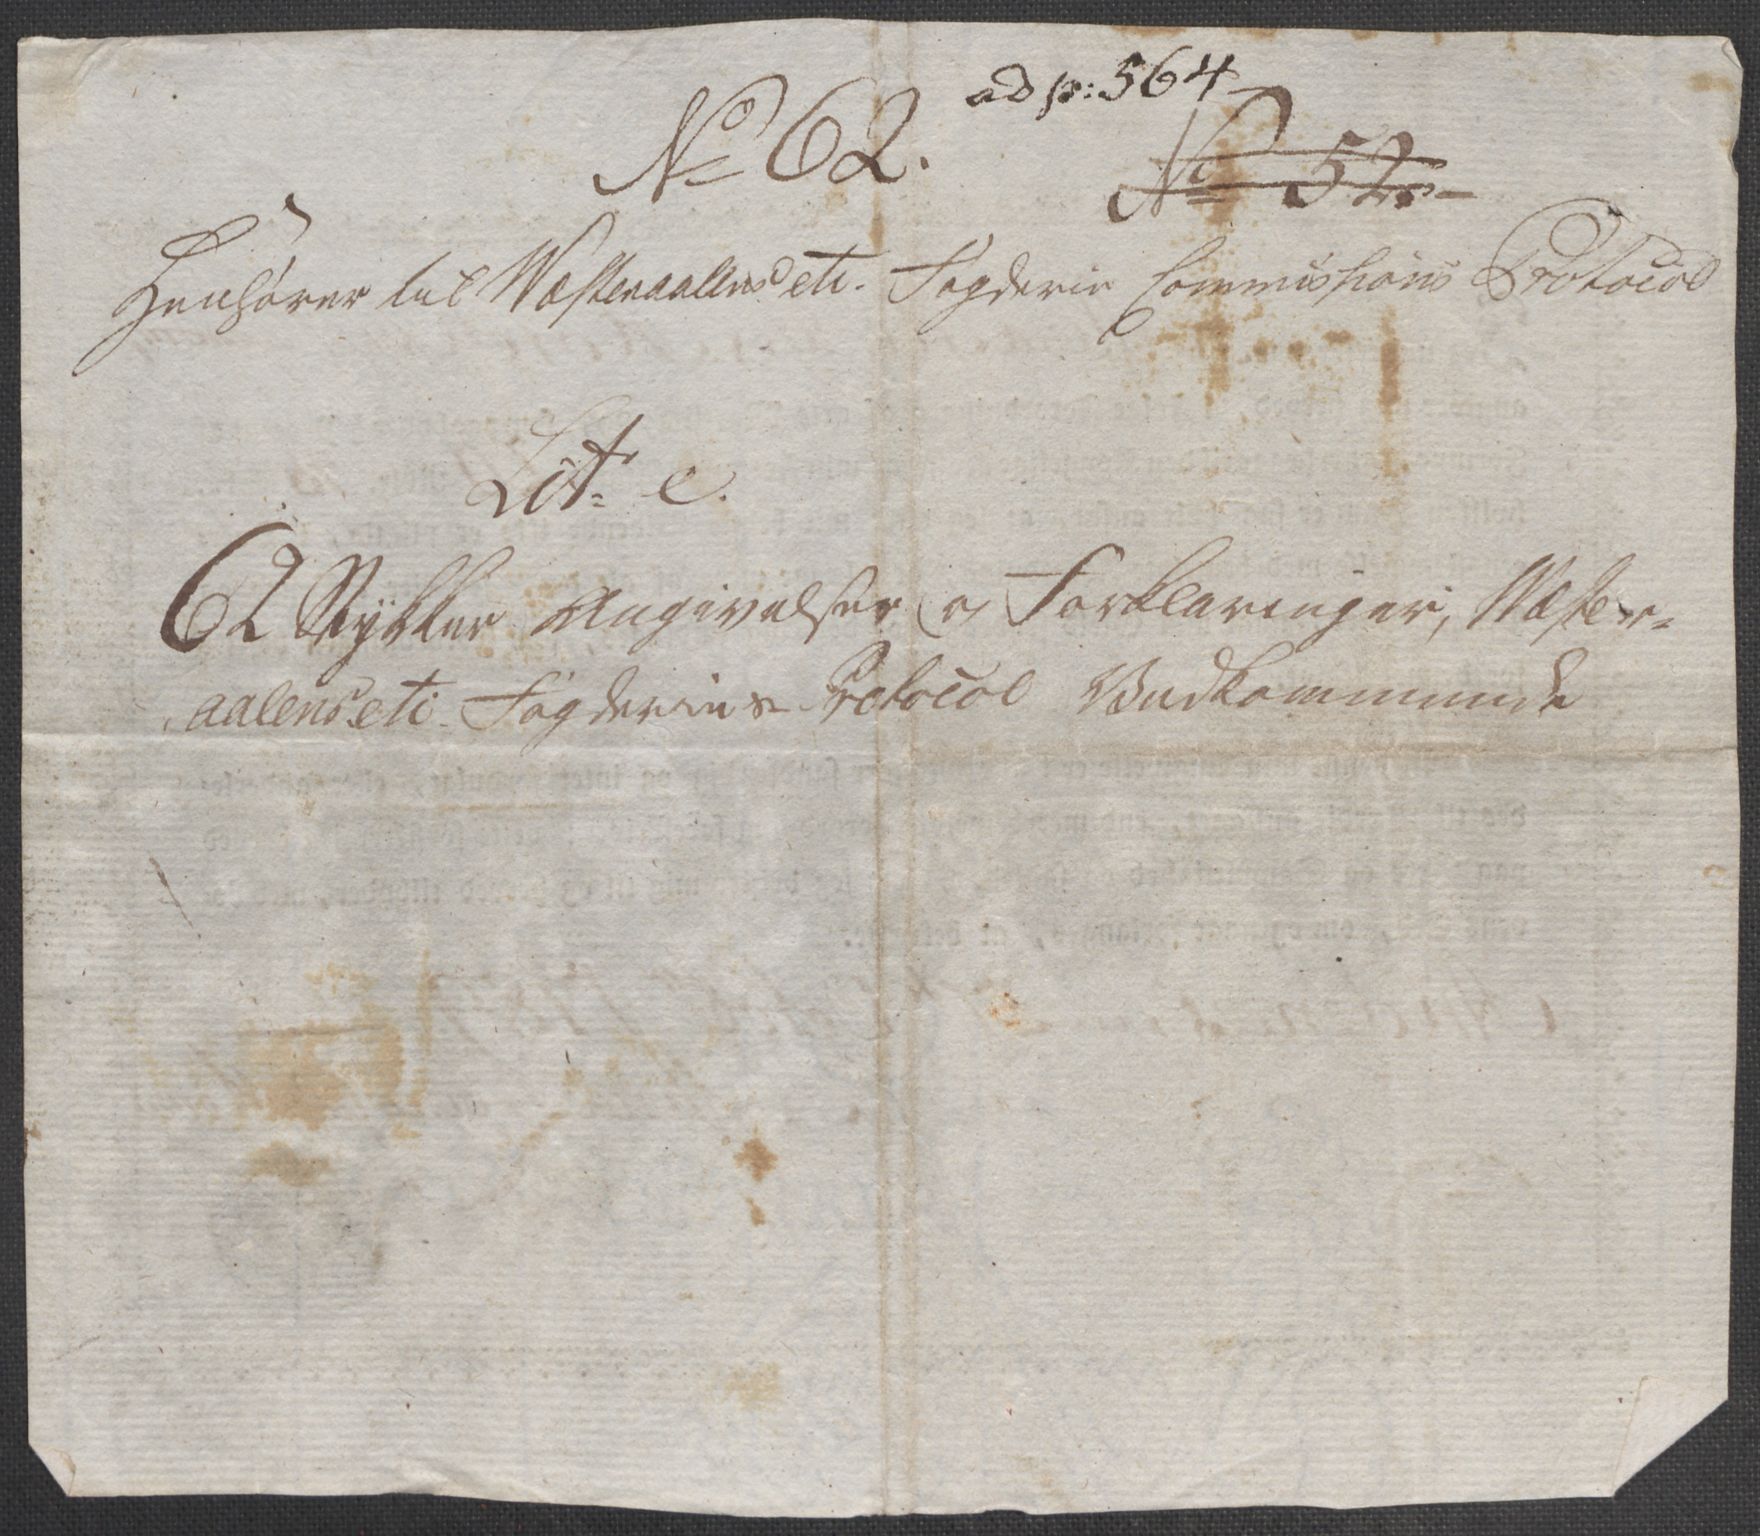 ad p: 564
No 62.
No 52.
Henhører til Westeraalens etc. Fogderie Commissions Protocol
Lit. C.
62 Stykker Angivelser og Forklaringer, Wester-
aalens etc. Fogderies Protocol Vedkommende